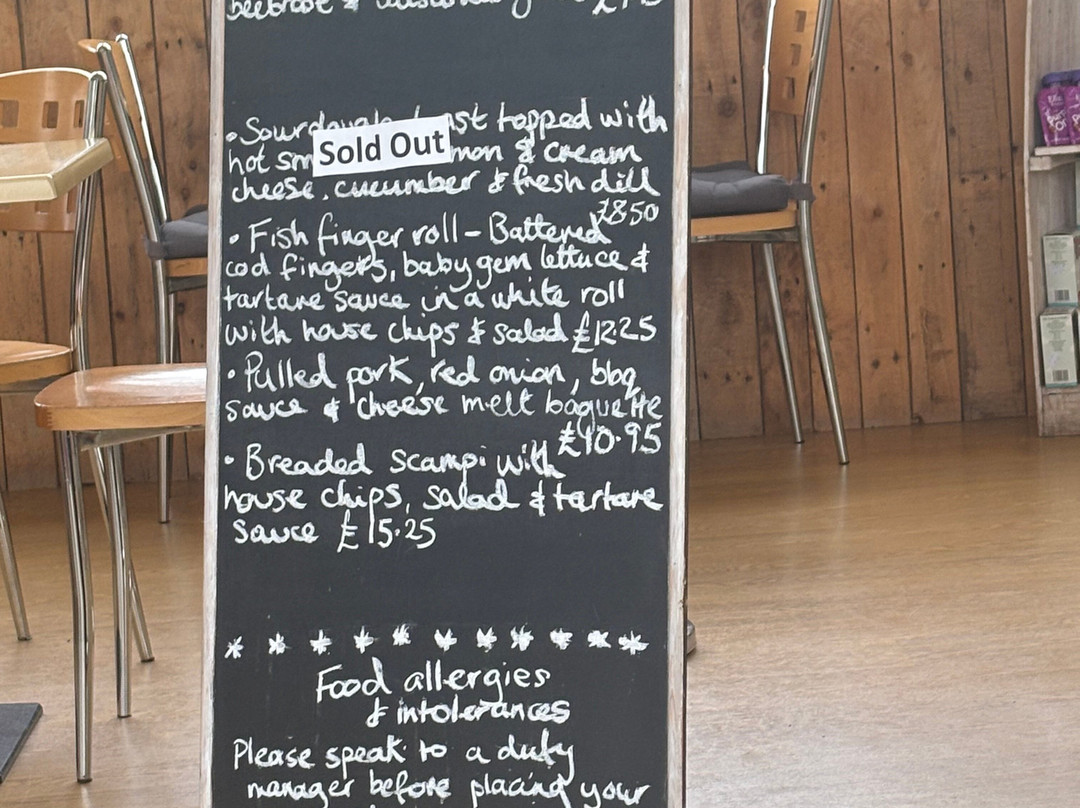 beetroot &
• Sourdough toast topped with
Sold Out
hot sm mon & cream
cheese, cucumber & fresh dill
£850
• Fish finger roll - Battered
cod fingers, baby gem lettuce &
tartare sauce in a white roll
with house chips & salad £1225
• Pulled pork, red onion, bbq
sauce & cheese melt baguette
£10.95
• Breaded scampi with
house chips, salad & tartare
sauce £15.25
* * * * * * * * * * *
Food allergies
& intolerances
Please speak to a duty
manager before placing your